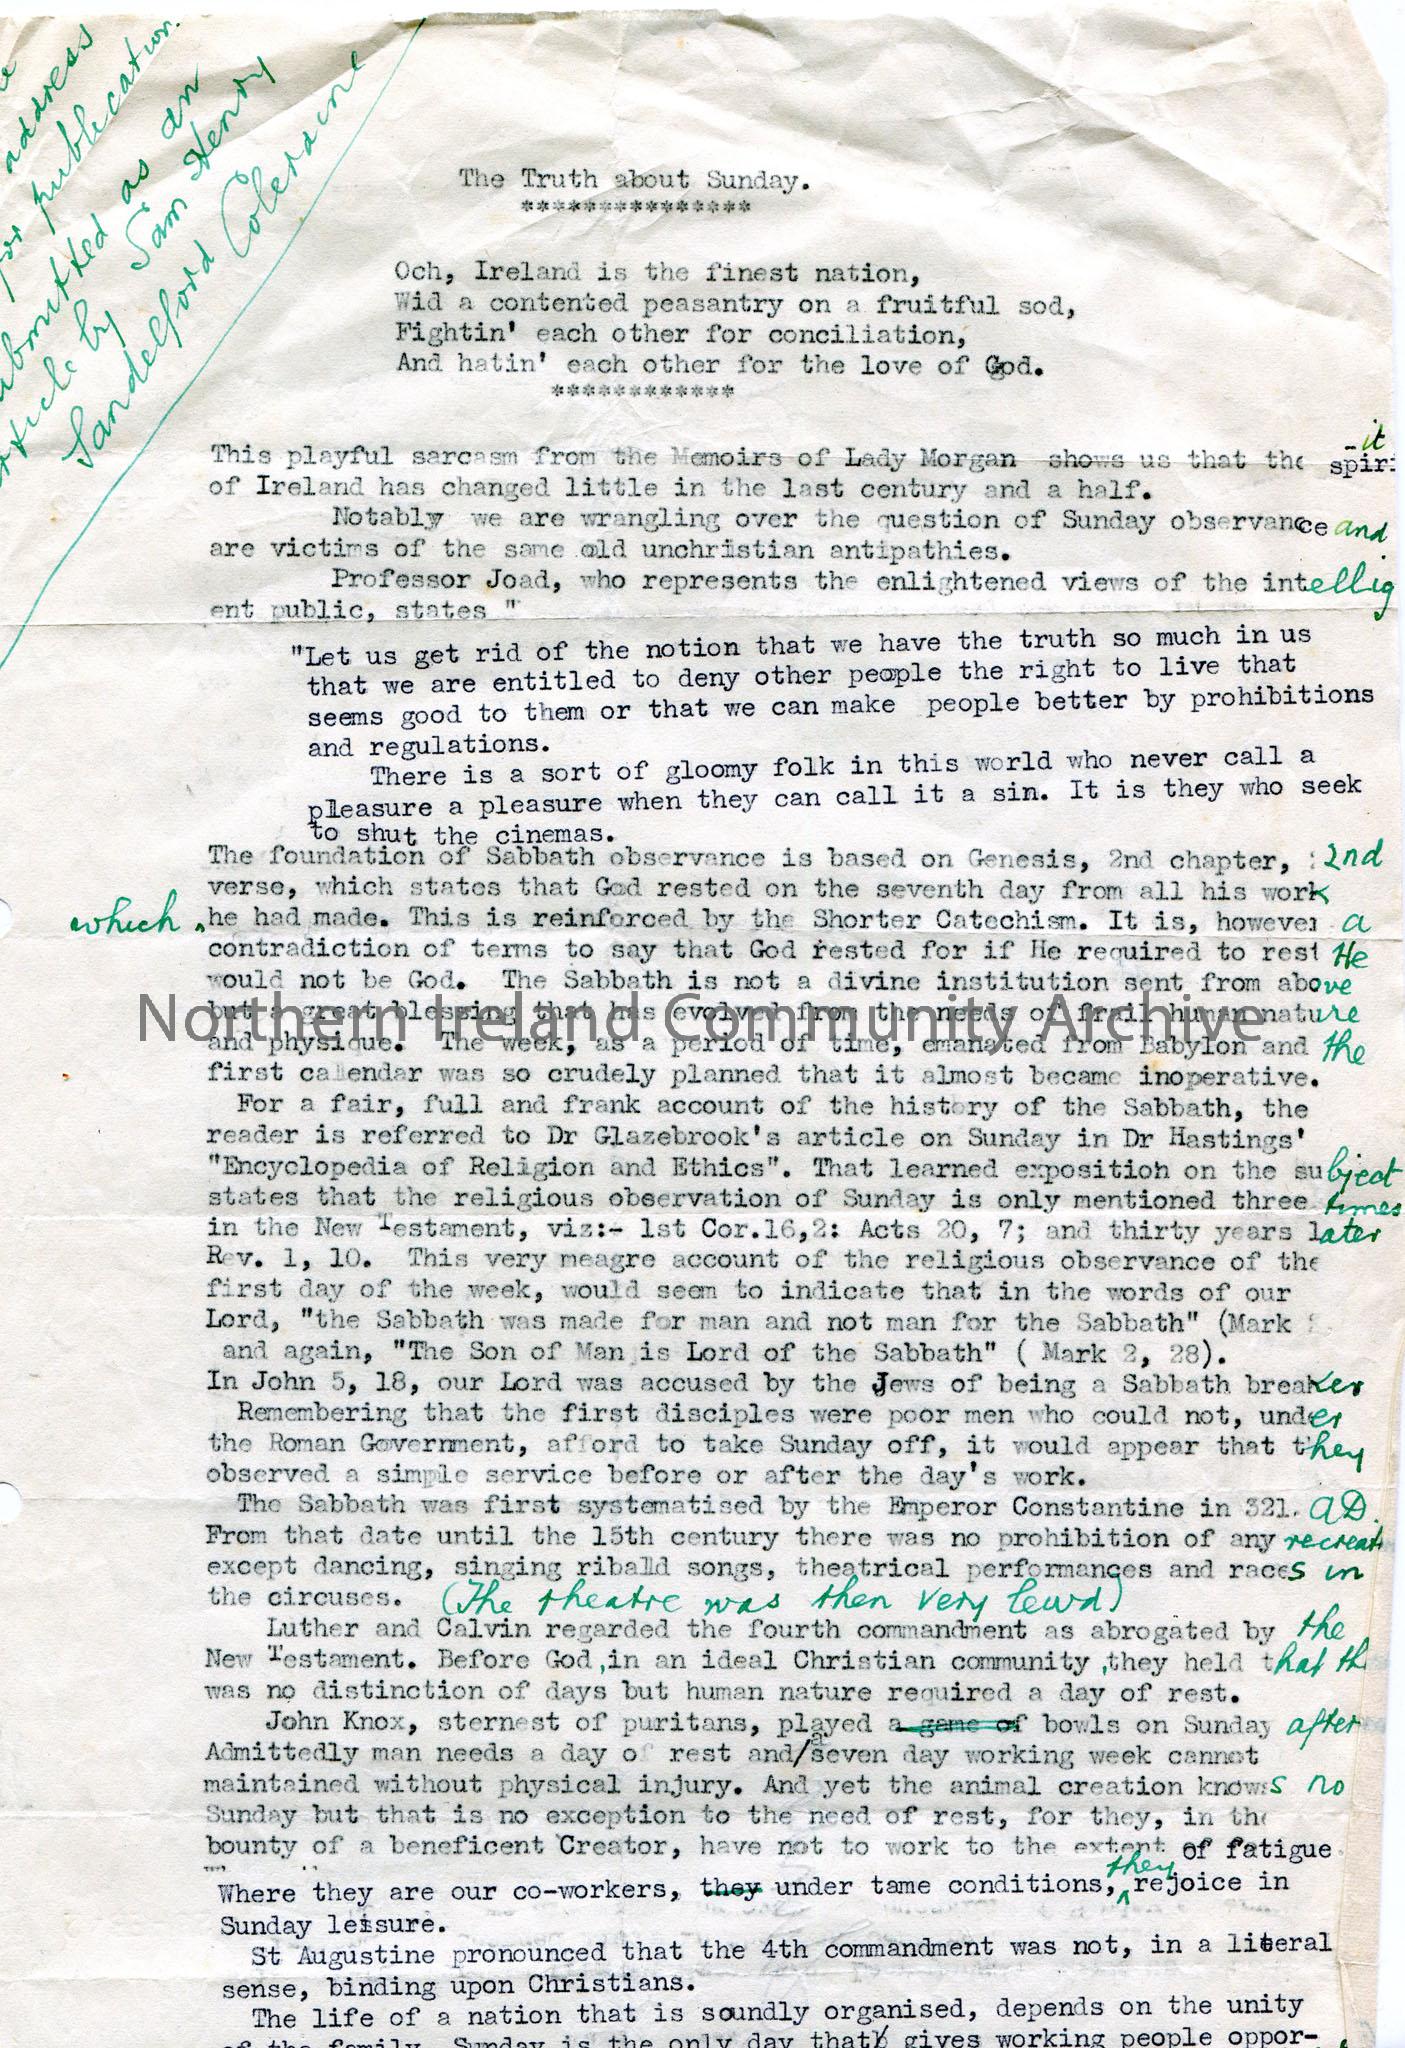 address
for publication.
as an
by Sam Henry
Sandelford Coleraine
The Truth about Sunday.
***************
Och, Ireland is the finest nation,
Wid a contented peasantry on a fruitful sod,
Fightin' each other for conciliation,
And hatin' each other for the love of God.
************
This playful sarcasm from the Memoirs of Lady Morgan shows us that the spirit
of Ireland has changed little in the last century and a half.
Notably we are wrangling over the question of Sunday observance and
are victims of the same old unchristian antipathies.
Professor Joad, who represents the enlightened views of the intellig
ent public, states "
"Let us get rid of the notion that we have the truth so much in us
that we are entitled to deny other people the right to live that
seems good to them or that we can make people better by prohibitions
and regulations.
There is a sort of gloomy folk in this world who never call a
pleasure a pleasure when they can call it a sin. It is they who seek
to shut the cinemas.
The foundation of Sabbath observance is based on Genesis, 2nd chapter, 2nd
verse, which states that God rested on the seventh day from all his work
which he had made. This is reinforced by the Shorter Catechism. It is, however a
contradiction of terms to say that God rested for if He required to rest He
would not be God. The Sabbath is not a divine institution sent from above
but a great blessing that has evolved from the needs of frail human nature
Northern Ireland Community Archive
and physique. The week, as a period of time, emanated from Babylon and the
first calendar was so crudely planned that it almost became inoperative.
For a fair, full and frank account of the history of the Sabbath, the
reader is referred to Dr Glazebrook's article on Sunday in Dr Hastings'
"Encyclopedia of Religion and Ethics". That learned exposition on the subject
states that the religious observation of Sunday is only mentioned three times
in the New Testament, viz:- 1st Cor.16,2: Acts 20, 7; and thirty years later
Rev. 1, 10. This very meagre account of the religious observance of the
first day of the week, would seem to indicate that in the words of our
Lord, "the Sabbath was made for man and not man for the Sabbath" (Mark
and again, "The Son of Man is Lord of the Sabbath" ( Mark 2, 28).
In John 5, 18, our Lord was accused by the Jews of being a Sabbath breaker
Remembering that the first disciples were poor men who could not, under
the Roman Government, afford to take Sunday off, it would appear that they
observed a simple service before or after the day's work.
The Sabbath was first systematised by the Emperor Constantine in 321. AD.
From that date until the 15th century there was no prohibition of any recreat
except dancing, singing ribald songs, theatrical performances and races in
the circuses. (The theatre was then very lewd)
Luther and Calvin regarded the fourth commandment as abrogated by the
New Testament. Before God, in an ideal Christian community, they held that th
was no distinction of days but human nature required a day of rest.
John Knox, sternest of puritans, played a game of bowls on Sunday after
Admittedly man needs a day of rest and/a seven day working week cannot
maintained without physical injury. And yet the animal creation knows no
Sunday but that is no exception to the need of rest, for they, in the
bounty of a beneficent Creator, have not to work to the extent of fatigue.
Where they are our co-workers, they under tame conditions, they rejoice in
Sunday leisure.
St Augustine pronounced that the 4th commandment was not, in a literal
sense, binding upon Christians.
The life of a nation that is soundly organised, depends on the unity
of the family. Sunday is the only day that gives working people oppor-